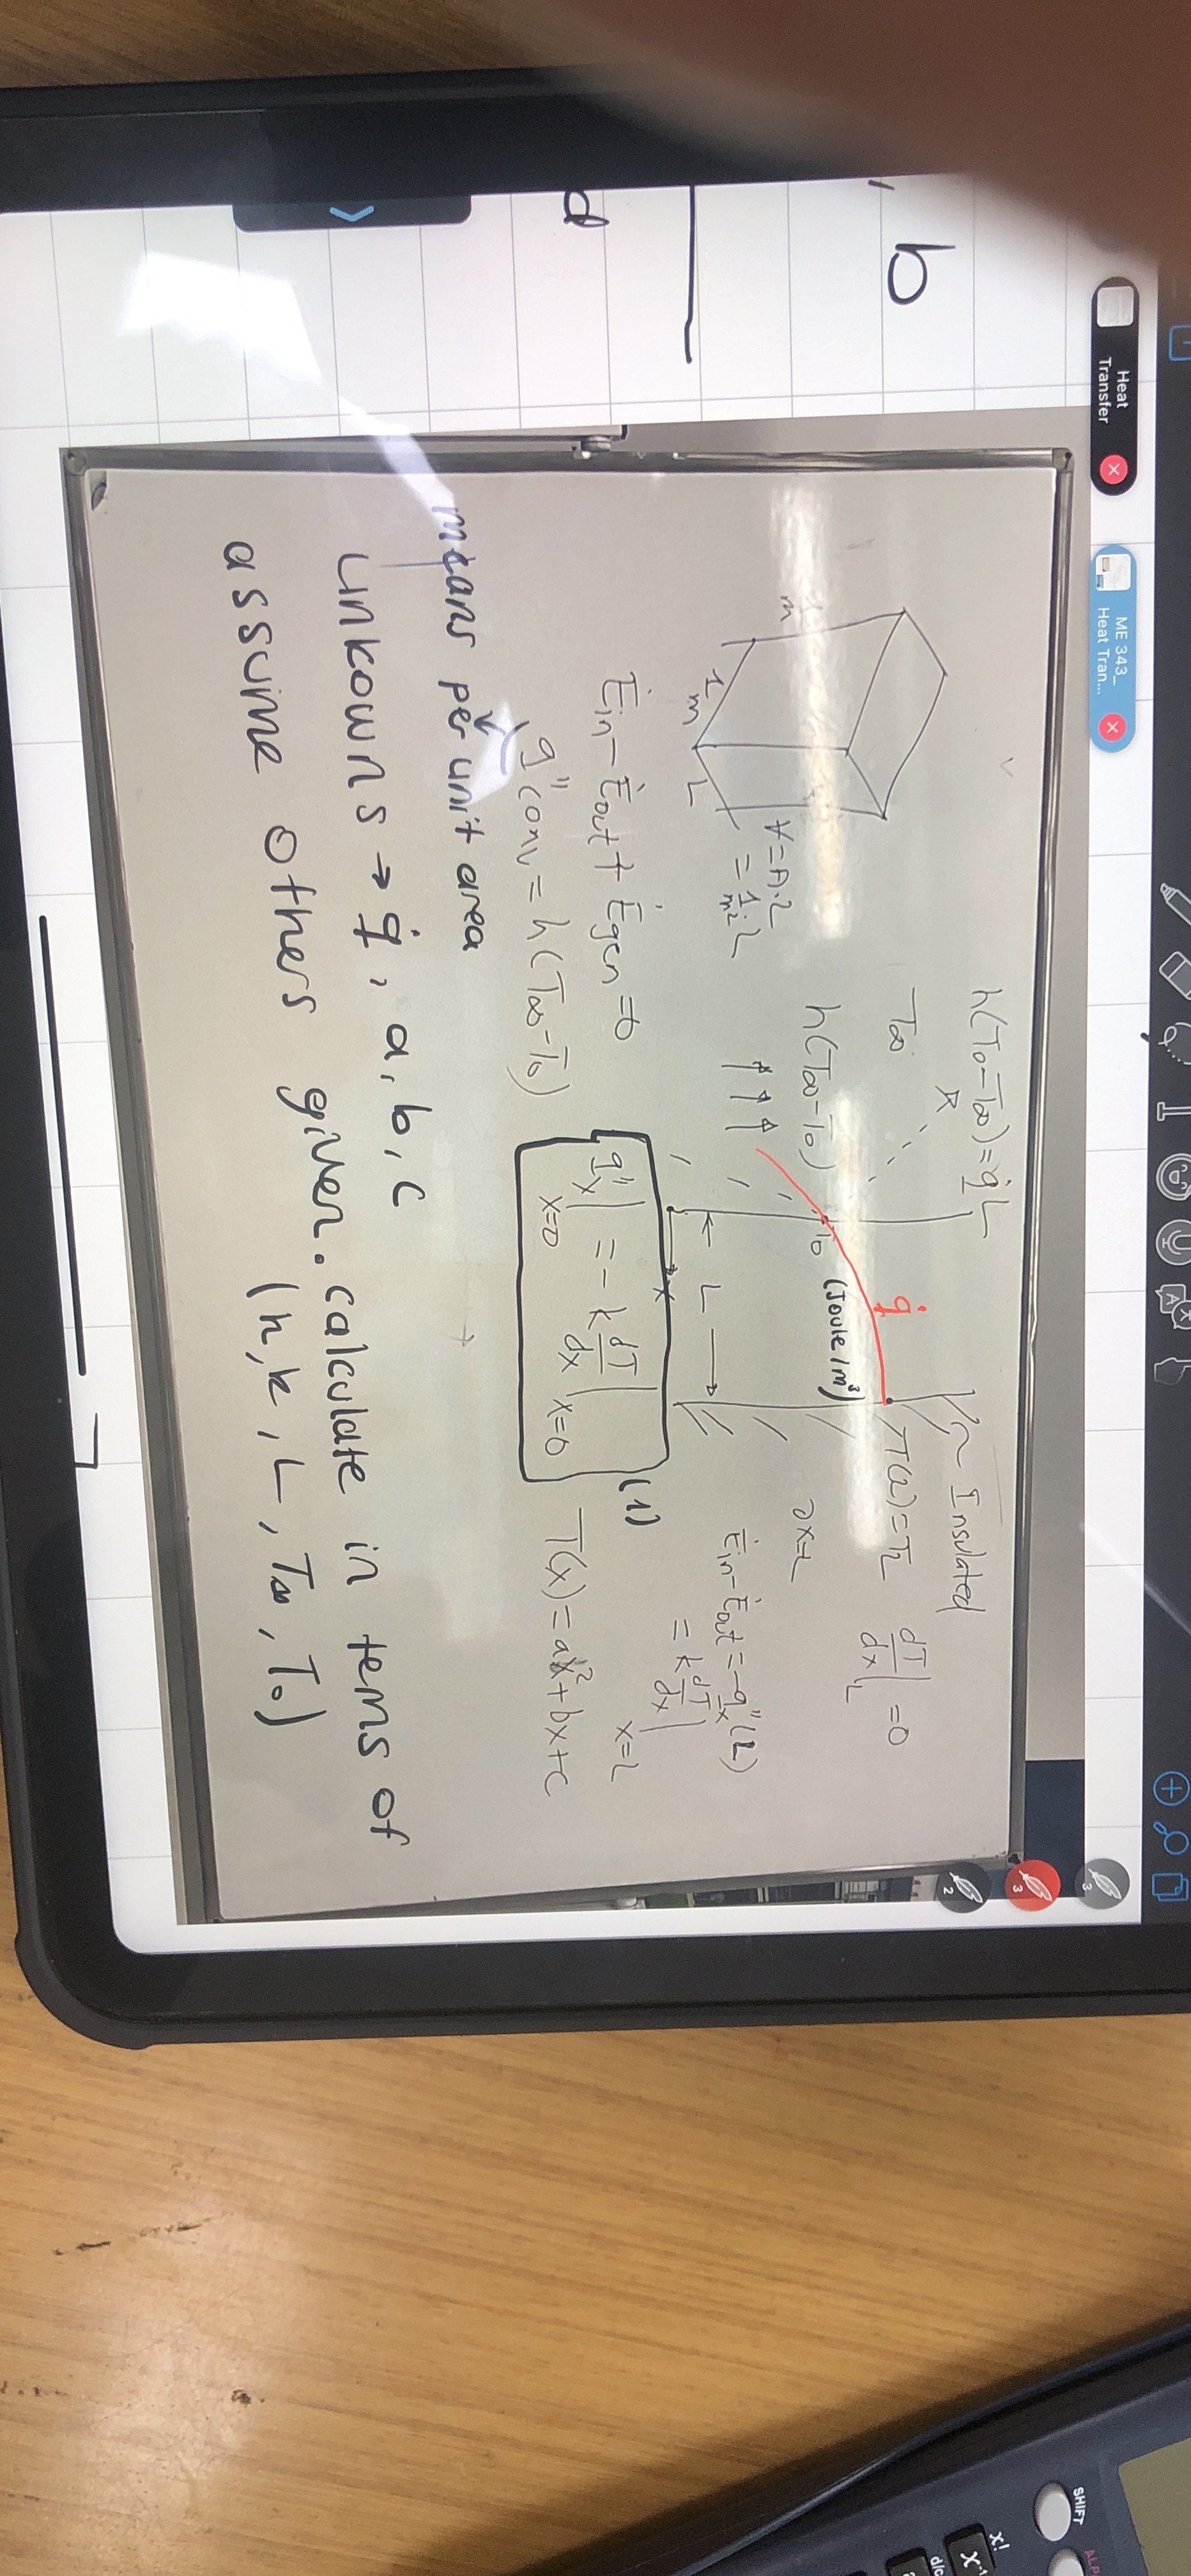 Heat Transfer
ME 343_ Heat Tran...
b
d
h(T₀-T∞)=q̇L
Insulated
T∞
T(L)=T_L
dT/dx|_L = 0
q̇
(Joule/m³)
h(T∞-T₀)
T₀
m
1 m
L
∀=A.L
=1.L
m²
L
x
Ėin-Ėout=-q''x(L)
= k dT/dx|x=L
Ėin-Ėout+Ėgen=0
q''conv=h(T∞-T₀)
q''x|x=0 = -k dT/dx|x=0
(1)
T(x)=ax²+bx+c
means per unit area
unkowns → q̇, a, b, c
assume others given. calculate in tems of
(h, k, L, T∞, T₀)
3
3
2
SHIFT
x!